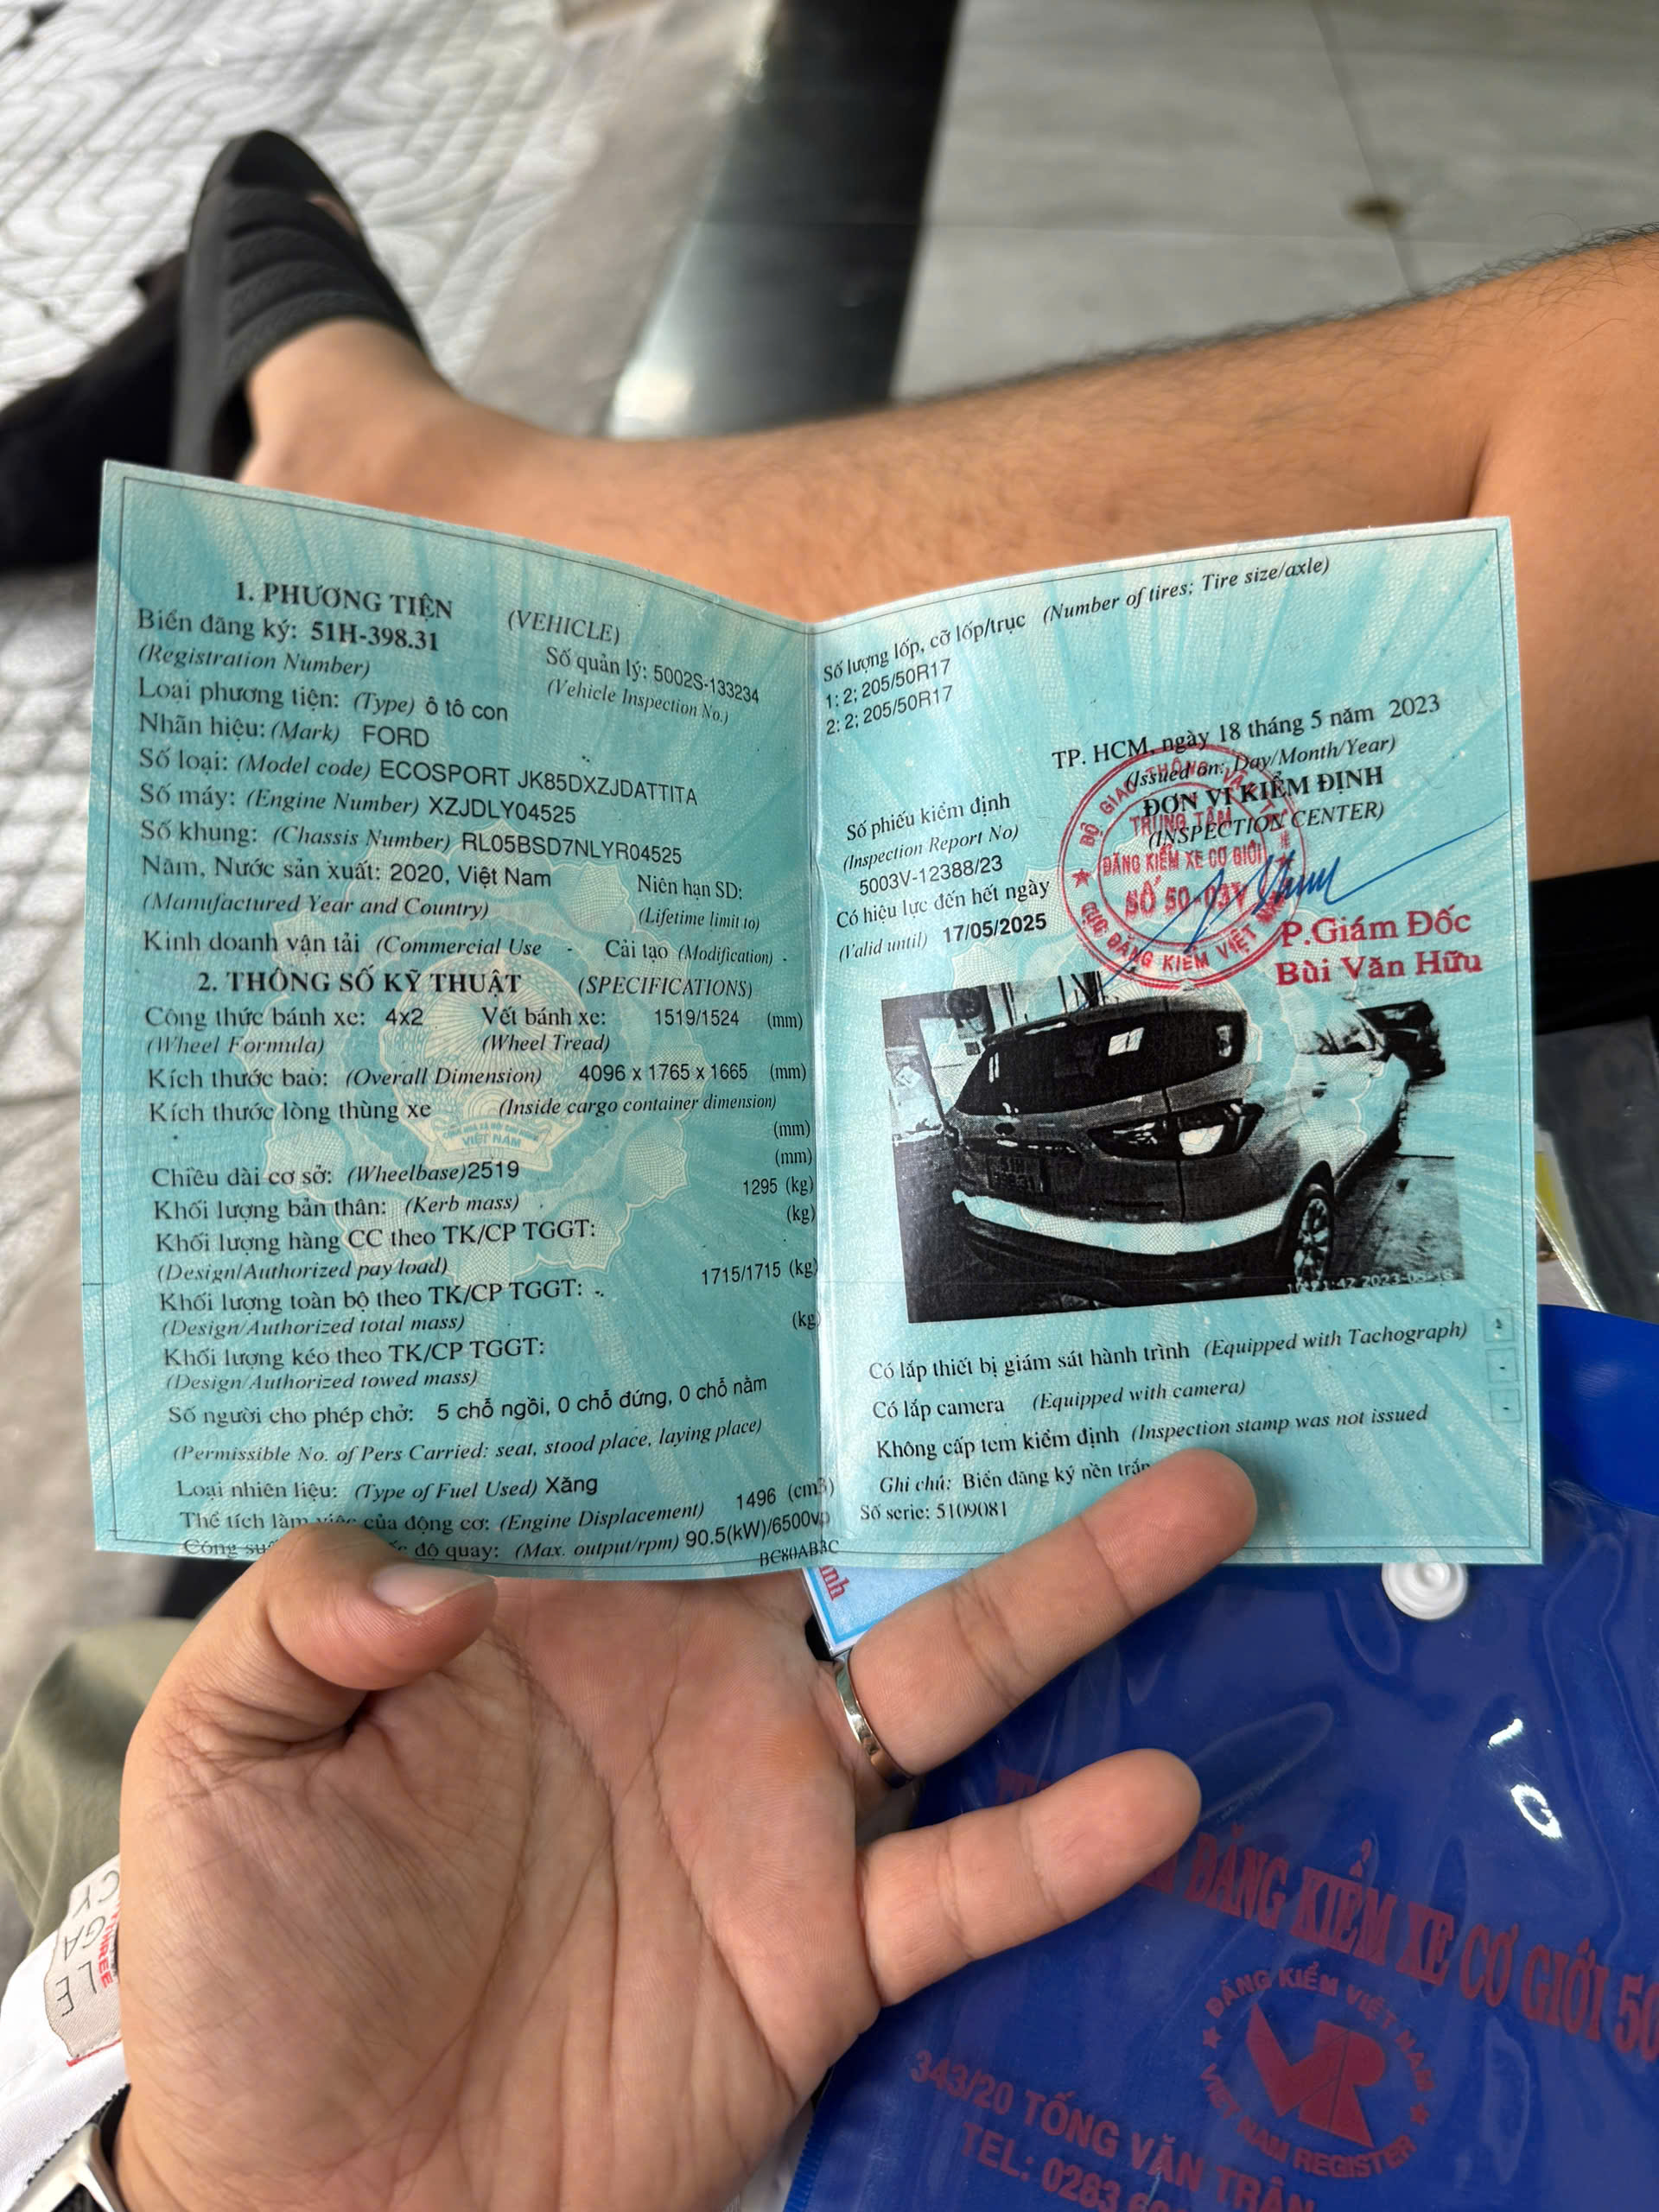 1. PHƯƠNG TIỆN (VEHICLE)
Biển đăng ký: 51H-398.31
(Registration Number)
Số quản lý: 5002S-133234
(Vehicle Inspection No.)
Loại phương tiện: (Type) ô tô con
Nhãn hiệu: (Mark) FORD
Số loại: (Model code) ECOSPORT JK85DXZJDATTITA
Số máy: (Engine Number) XZJDLY04525
Số khung: (Chassis Number) RL05BSD7NLYR04525
Năm, Nước sản xuất: 2020, Việt Nam
Niên hạn SD:
(Manufactured Year and Country)
(Lifetime limit to)
Kinh doanh vận tải (Commercial Use - Cải tạo (Modification) -
2. THÔNG SỐ KỸ THUẬT (SPECIFICATIONS)
Công thức bánh xe: 4x2 Vết bánh xe: 1519/1524 (mm)
(Wheel Formula) (Wheel Tread)
Kích thước bao: (Overall Dimension) 4096 x 1765 x 1665 (mm)
Kích thước lòng thùng xe (Inside cargo container dimension)
(mm)
Chiều dài cơ sở: (Wheelbase)2519 (mm)
Khối lượng bản thân: (Kerb mass) 1295 (kg)
Khối lượng hàng CC theo TK/CP TGGT: (kg)
(Design/Authorized pay load)
Khối lượng toàn bộ theo TK/CP TGGT: 1715/1715 (kg)
(Design/Authorized total mass)
Khối lượng kéo theo TK/CP TGGT: (kg
(Design/Authorized towed mass)
Số người cho phép chở: 5 chỗ ngồi, 0 chỗ đứng, 0 chỗ nằm
(Permissible No. of Pers Carried: seat, stood place, laying place)
Loại nhiên liệu: (Type of Fuel Used) Xăng
Thể tích làm việc của động cơ: (Engine Displacement) 1496 (cm3)
Công độ quay: (Max. output/rpm) 90.5(kW)/6500vp
BC80AB3C
CỘNG HÒA XÃ HỘI CHỦ NGHĨA
VIỆT NAM
Số lượng lốp, cỡ lốp/trục (Number of tires; Tire size/axle)
1: 2; 205/50R17
2: 2; 205/50R17
TP. HCM, ngày 18 tháng 5 năm 2023
(Issued on: Day/Month/Year)
ĐƠN VỊ KIỂM ĐỊNH
(INSPECTION CENTER)
Số phiếu kiểm định
(Inspection Report No)
5003V-12388/23
Có hiệu lực đến hết ngày
(Valid until) 17/05/2025
BỘ GIAO THÔNG VẬN TẢI
TRUNG TÂM
ĐĂNG KIỂM XE CƠ GIỚI
SỐ 50-03V
CỤC ĐĂNG KIỂM VIỆT NAM
P.Giám Đốc
Bùi Văn Hữu
Có lắp thiết bị giám sát hành trình (Equipped with Tachograph)
Có lắp camera (Equipped with camera) -
Không cấp tem kiểm định (Inspection stamp was not issued -
Ghi chú: Biển đăng ký nền
Số serie: 5109081
ĐĂNG KIỂM XE CƠ GIỚI 50
ĐĂNG KIỂM VIỆT NAM
VR
VIET NAM REGISTER
343/20 TỐNG VĂN TRÂN
TEL: 0283
THREE
GALE